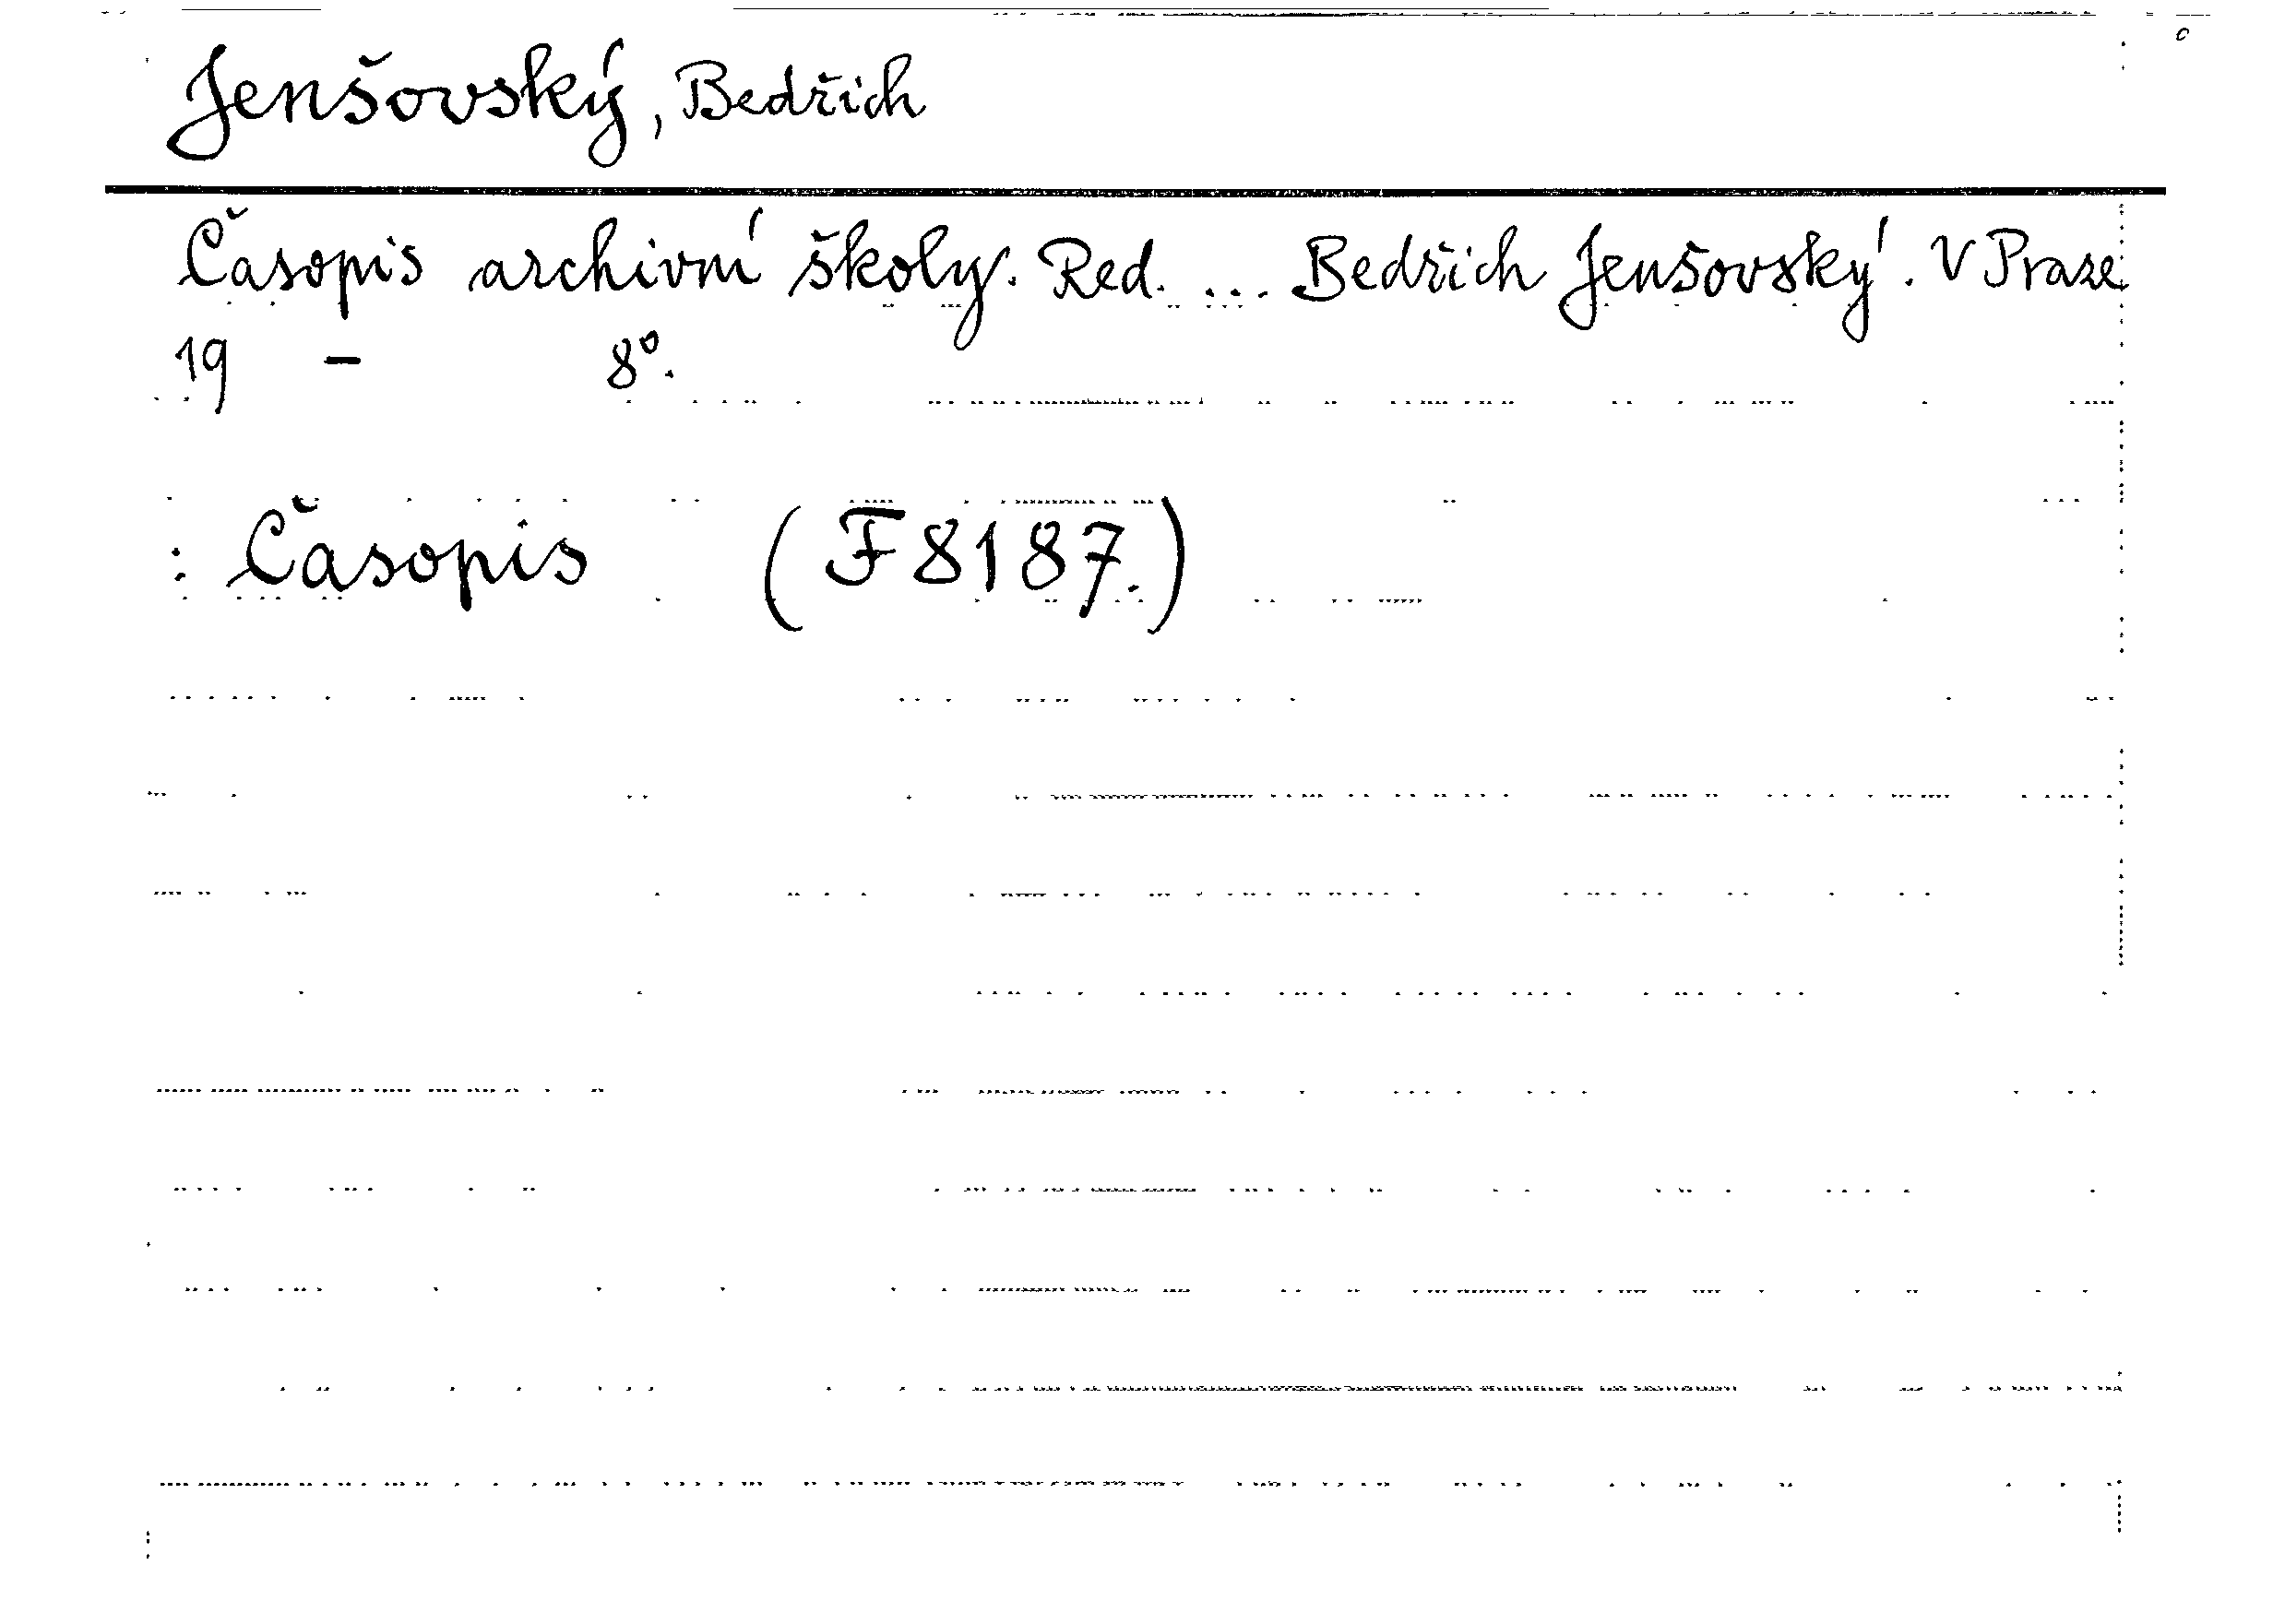 Jenšovský, Bedřich
Časopis archivní školy. Red. ... Bedřich Jenšovský. V Praze
19 – 8º.
: Časopis (F 8187.)